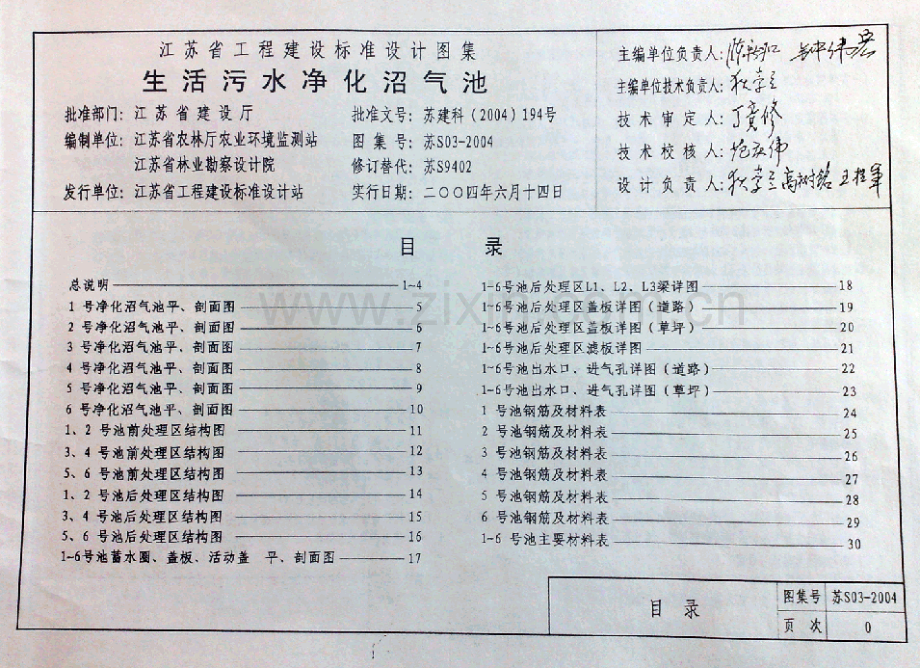 江苏省工程建设标准设计图集
生活污水净化沼气池
批准部门: 江苏省建设厅
批准文号: 苏建科(2004)194号
编制单位: 江苏省农林厅农业环境监测站
图集号: 苏S03-2004
江苏省林业勘察设计院
修订替代: 苏S9402
发行单位: 江苏省工程建设标准设计站
实行日期: 二〇〇四年六月十四日
主编单位负责人:
主编单位技术负责人:
技术审定人: 丁竟修
技术校核人:
设计负责人:
目 录
总说明 1~4
1号净化沼气池平、剖面图 5
2号净化沼气池平、剖面图 6
3号净化沼气池平、剖面图 7
4号净化沼气池平、剖面图 8
5号净化沼气池平、剖面图 9
6号净化沼气池平、剖面图 10
1、2号池前处理区结构图 11
3、4号池前处理区结构图 12
5、6号池前处理区结构图 13
1、2号池后处理区结构图 14
3、4号池后处理区结构图 15
5、6号池后处理区结构图 16
1~6号池蓄水圈、盖板、活动盖 平、剖面图 17
1~6号池后处理区L1、L2、L3梁详图 18
1~6号池后处理区盖板详图(道路) 19
1~6号池后处理区盖板详图(草坪) 20
1~6号池后处理区滤板详图 21
1~6号池出水口、进气孔详图(道路) 22
1~6号池出水口、进气孔详图(草坪) 23
1号池钢筋及材料表 24
2号池钢筋及材料表 25
3号池钢筋及材料表 26
4号池钢筋及材料表 27
5号池钢筋及材料表 28
6号池钢筋及材料表 29
1~6号池主要材料表 30
目 录
图集号 苏S03-2004
页次 0